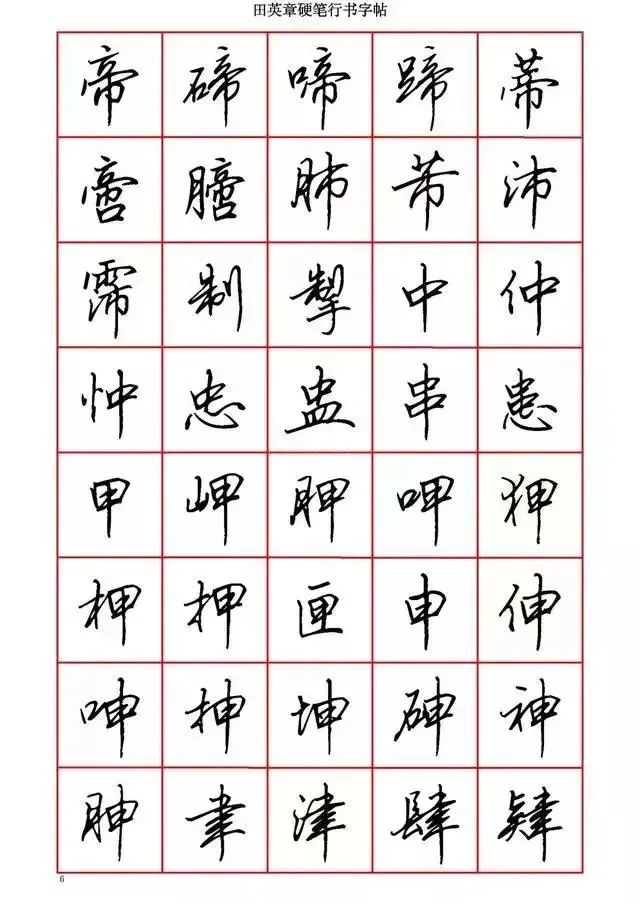 田英章硬笔行书字帖
帝 碲 啼 蹄 蒂
啻 膪 肺 芾 沛
霈 制 掣 中 仲
忡 忠 盅 串 患
甲 岬 胛 呷 狎
柙 押 匣 申 伸
呻 抻 坤 砷 神
胂 聿 津 肆 肄
6